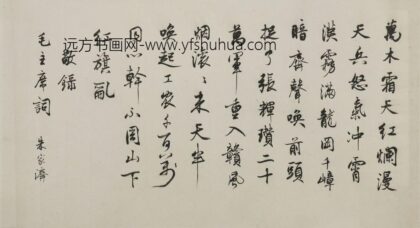 远方书画网-www.yfshuhua.com
萬木霜天紅爛漫
天兵怒氣冲霄
漢霧滿龍岡千嶂
暗齊聲喚前頭
捉了張輝瓚二十
萬軍重入贛風
烟滚滚来天半
唤起工农千百万
同心幹不周山下
红旗亂
敬錄
毛主席詞
朱家濟